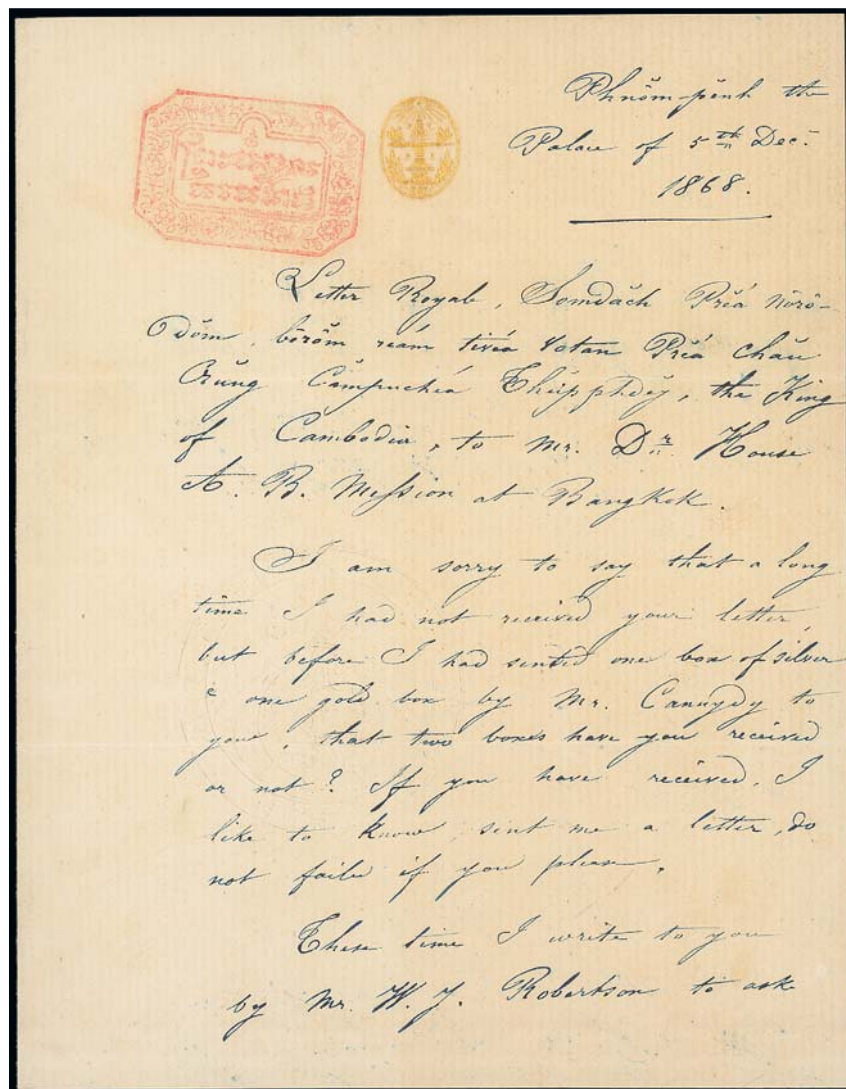 Phnŏm-pĕnh the
Palace of 5th Dec.
1868.
Letter Royale, Somdăch Prĕá Nŏrŏ-
Dŏm, bŏrŏm reám tivéa Votan Prĕá chău
Crŭng Cămpuchéa Thŭpphdĕy, the King
of Cambodia, to Mr. Dr. House
A. B. Mission at Bangkok.
I am sorry to say that a long
time I had not received your letter,
but before I had sented one box of silver
& one gold box by Mr. Canuydy to
your, that two boxes have you received
or not? If you have received, I
like to know, sint me a letter, do
not faile if you please.
These time I write to you
by Mr. W. J. Robertson to ask